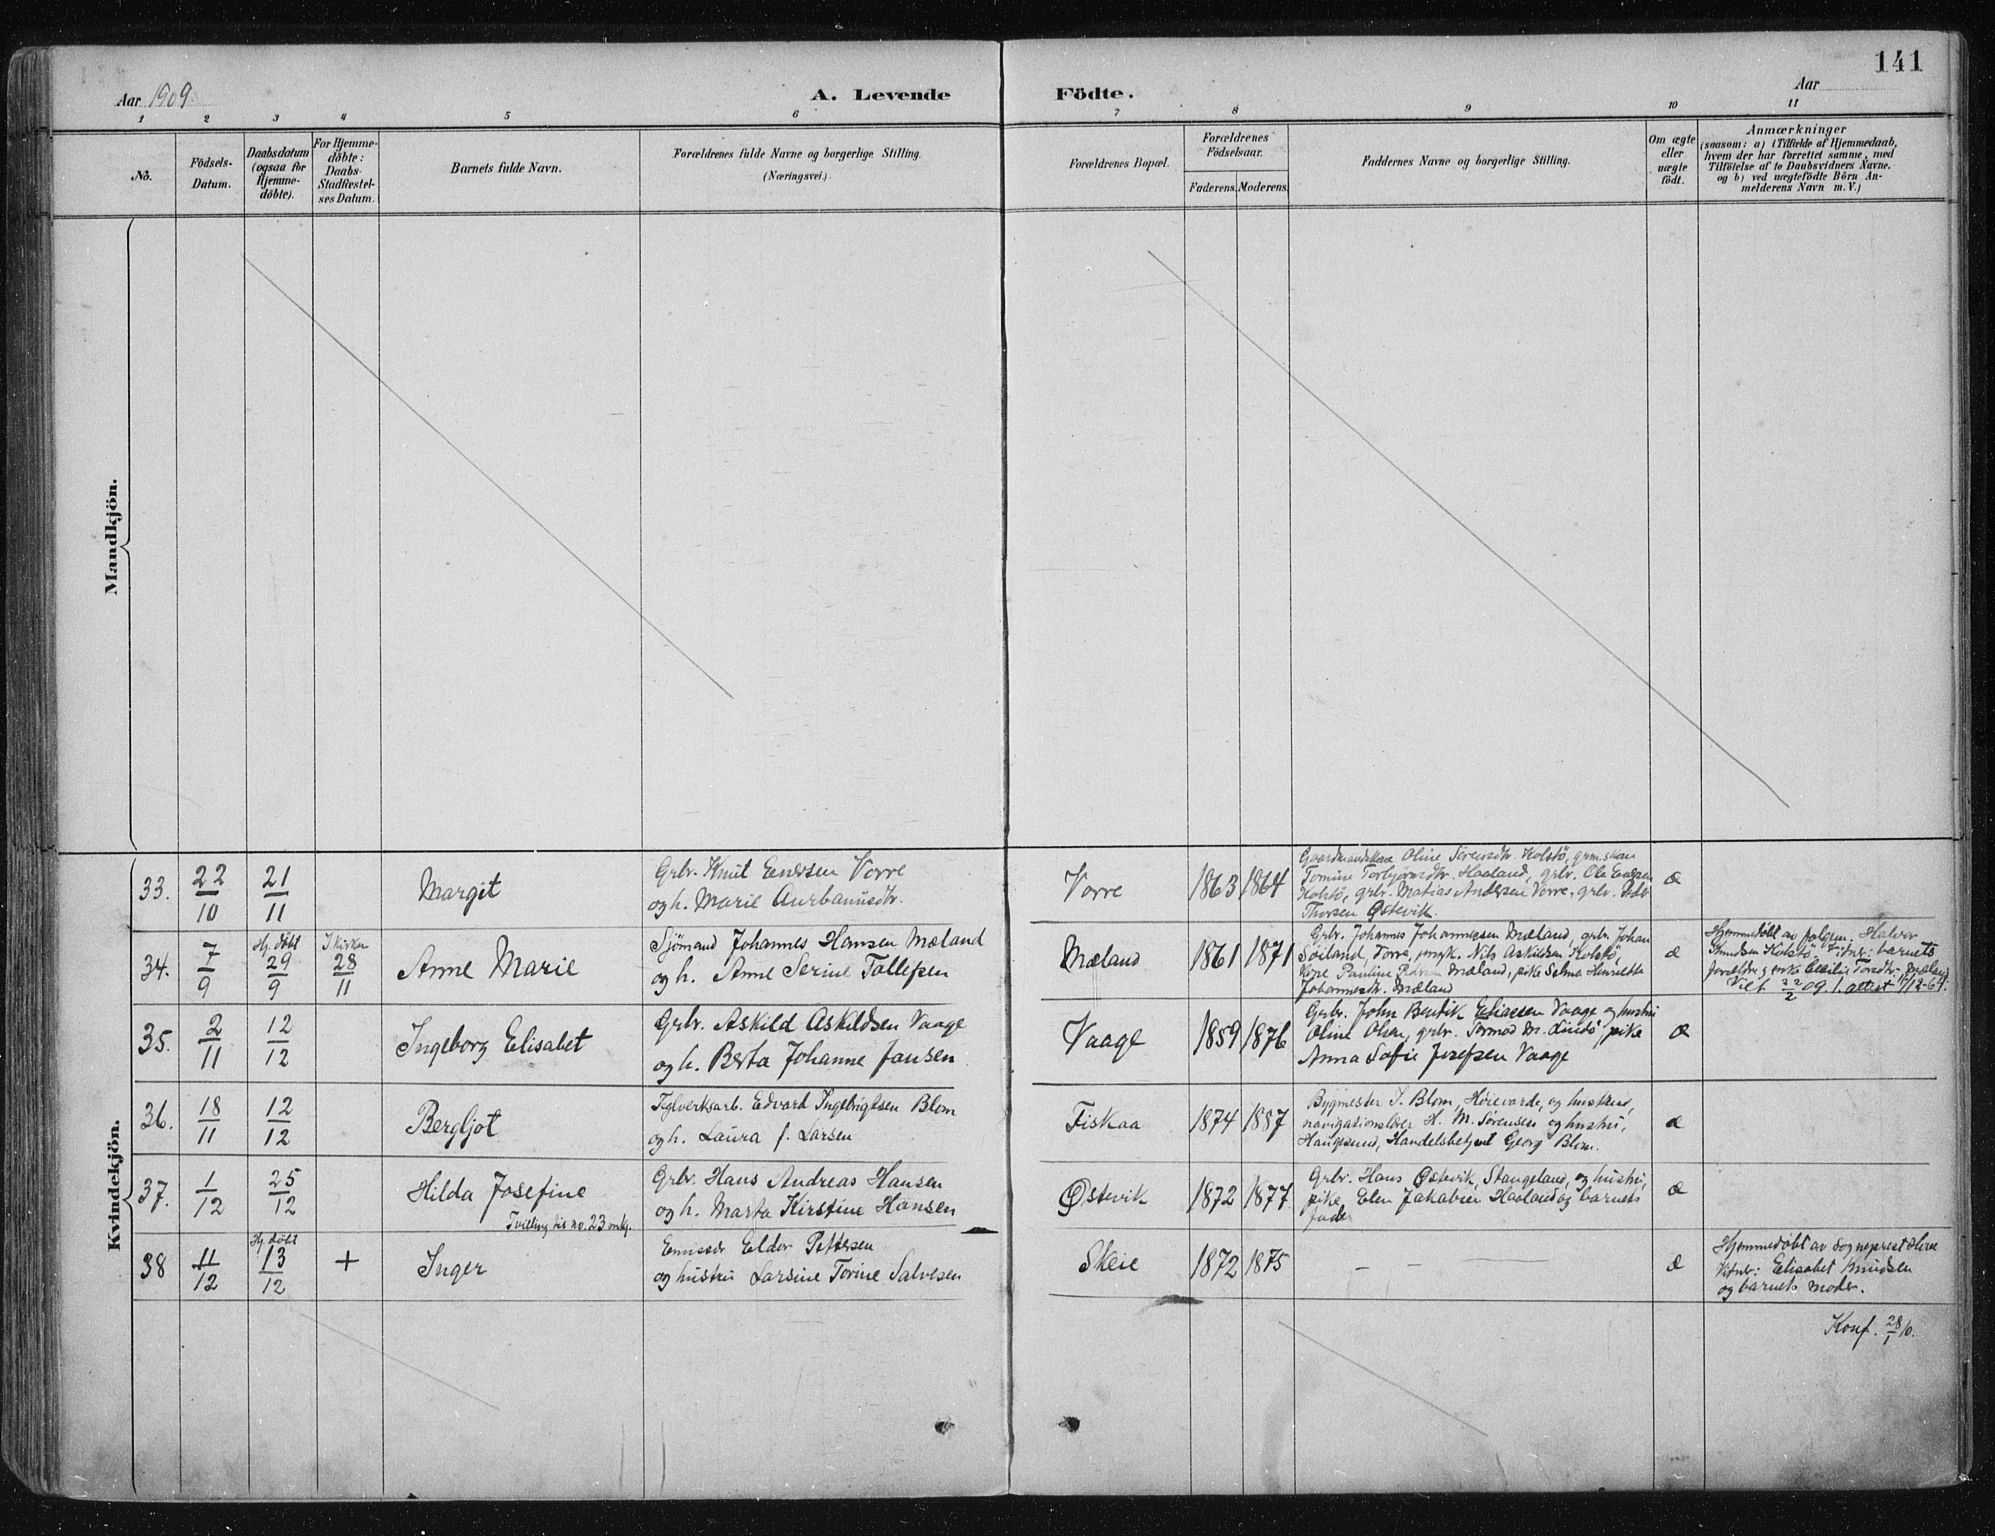 141
Aar 1909.
A. Levende Födte.
Aar
1 2 3 4 5 6 7 8 9 10 11
No.
Födsels-
Datum.
Daabsdatum
(ogsaa for
Hjemme-
döbte).
For Hjemme-
döbte:
Daabs-
Stadfæstel-
ses Datum.
Barnets fulde Navn.
Forældrenes fulde Navne og borgerlige Stilling.
(Næringsvei.)
Forældrenes Bopæl.
Forældrenes
Födselsaar.
Faderens. Moderens.
Faddernes Navne og borgerlige Stilling.
Om ægte
eller
uægte
födt.
Anmærkninger
(saasom: a) i Tilfælde af Hjemmedaab,
hvem der har forrettet samme, med
Tilföielse af to Daabsvidners Navne.
og b) ved uægtefödte Börn An-
melderens Navn m. V.)
Mandkjön.
Kvindekjön.
33. 22/10 21/11 Margit
Grbr. Knut Enersen Vorre
og h. Marie Aurbanusdtr.
Vorre 1863 1864
Gaardmandskone Oline Sörensdtr. Kolstö,
Tomine Torbjörnsdtr. Haaland, grbr. Ole
Kolstö, grbr. Matias Andersen Vorre, grbr.
Thorsen Østevik.
æ
34. 7/9 Hj. döbt 29/9 I kirken 28/11 Anne Marie
Sjömand Johannes Hansen Mæland
og h. Anne Serine Tollefsen
Mæland 1861 1871
Grbr. Johannes Johannessen Mæland, grbr. Johan
Söiland, Torre, ungk. Nils Askildsen Kolstö,
Kone Pauline Mæland, pike Selma Henriette
Johannesdtr. Mæland
æ
Hjemmedöbt av Halvor
Knudsen Kolstö. Vidner: barnets
forældre Torsdtr. Mæland
22/2 09. 1. attest 17/12-64.
35. 2/11 12/12 Ingeborg Elisabet
Grbr. Askild Askildsen Vaage
og h. Berta Johanne Jansen
Vaage 1859 1876
Grbr. John Bentik Eliassen Vaage og hustru
Oline Olsen, grbr. Tormod M. Lindö, pike
Anna Sofie Josefsen Vaage
æ
36. 18/11 12/12 Bergljot
Teglverksarb. Edvart Ingebrigtsen Blom
og h. Laura f. Larsen
Fiskaa 1874 1887
Bygmester I. Blom, Höievarde, og hustru,
navigationslærer H. M. Sörensen og hustru,
Haugesund, Handelsbetjent Georg Blom.
æ
37. 1/12 25/12 Hilda Josefine
Tvilling til no. 23 mk.
Grbr. Hans Andreas Hansen
og h. Marta Kirstine Hansen
Østevik 1872 1877
Grbr. Hans Østevik, Stangeland, og hustru,
pike Elen Haaland og barnets
fader
æ
38 11/12 Hj. döbt 13/12 + Inger
Emissær Eldor Pettersen
og hustru Larsine Torine Salvesen
Skeie 1872 1875
— — —
æ
Hjemmedöbt av Sogneprest
Vidner: Elisabet Knudsen
og barnets moder.
Konf. 28/1 10.